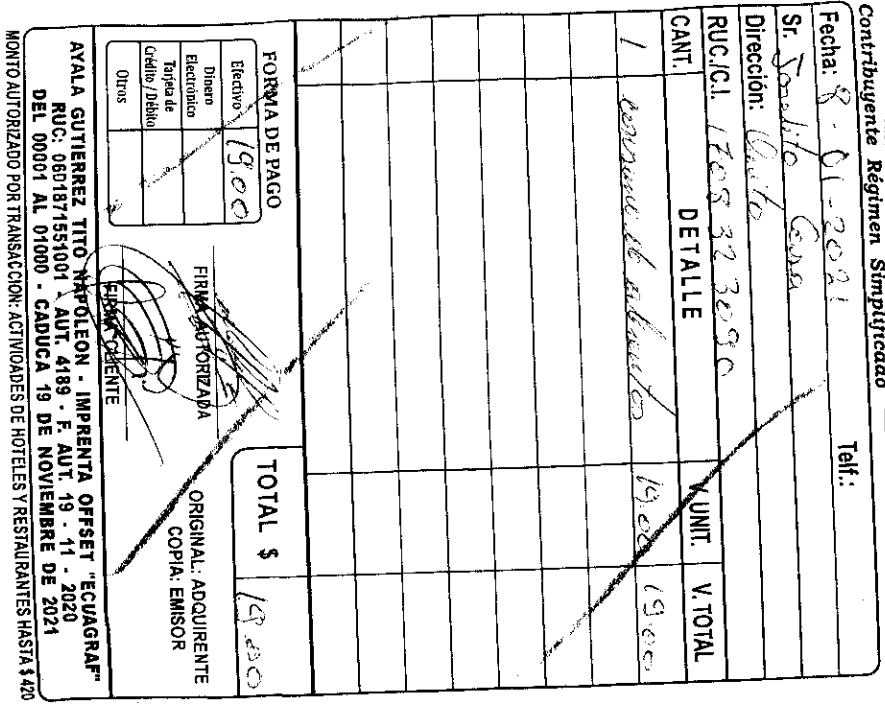 Contribuyente Régimen Simplificado
Fecha: 8-01-2021 Telf.:
Sr.
Dirección: Quito
RUC./C.I.
CANT. DETALLE V. UNIT. V. TOTAL
1 consumo de alimentos 19.00 19.00
FORMA DE PAGO
Efectivo 19.00
Dinero Electrónico
Tarjeta de Crédito / Débito
Otros
FIRMA AUTORIZADA
FIRMA CLIENTE
TOTAL $ 19.00
ORIGINAL: ADQUIRENTE
COPIA: EMISOR
AYALA GUTIERREZ TITO NAPOLEON - IMPRENTA OFFSET "ECUAGRAF"
RUC: 0601871551001 - AUT. 4189 - F. AUT. 19 - 11 - 2020
DEL 00001 AL 01000 - CADUCA 19 DE NOVIEMBRE DE 2021
MONTO AUTORIZADO POR TRANSACCION: ACTIVIDADES DE HOTELES Y RESTAURANTES HASTA $ 420